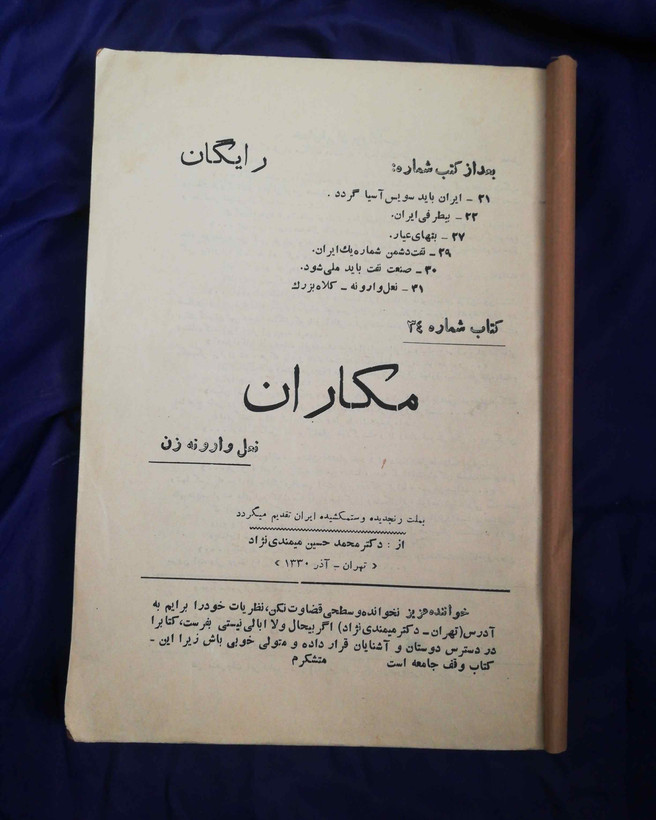 رایگان
بعد از کتب شماره:
۲۱ - ایران باید سویس آسیا گردد .
۲۲ - بیطرفی ایران.
۲۷ - بتهای عیار.
۲۹ - نفت دشمن شماره یک ایران.
۳۰ - صنعت نفت باید ملی شود.
۳۱ - نعل وارونه - کلاه بزرک
کتاب شماره ۳۴
مکاران
نعل وارونه زن
بملت رنجدیده و ستمکشیده ایران تقدیم میگردد
از : دکتر محمد حسین میمندی نژاد
« تهران - آذر ۱۳۳۰ »
خواننده عزیز نخوانده و سطحی قضاوت نکن، نظریات خود را برایم به
آدرس (تهران - دکتر میمندی نژاد) اگر بیحال و لا ابالی نیستی بفرست، کتابرا
در دسترس دوستان و آشنایان قرار داده و متولی خوبی باش زیرا این -
کتاب وقف جامعه است متشکرم